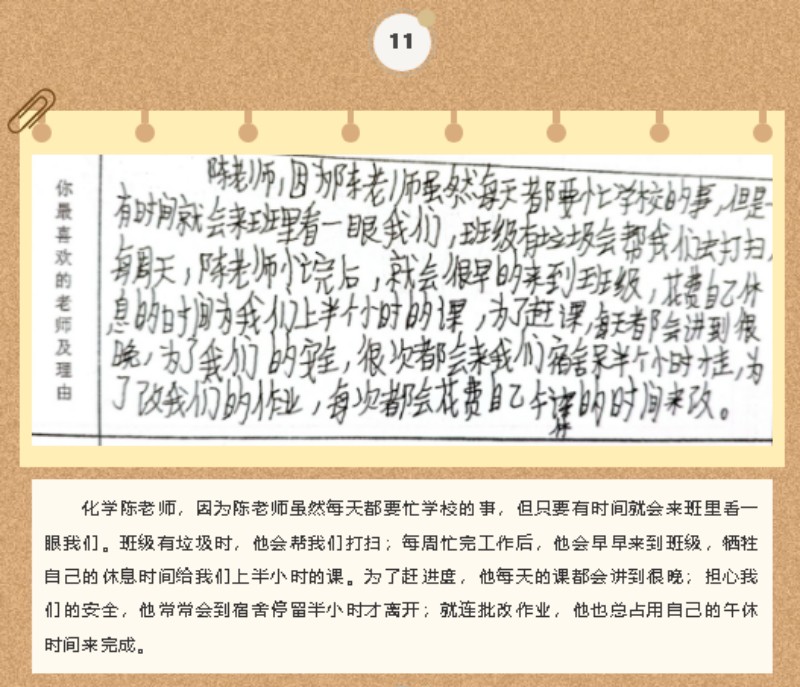 11
你最喜欢的老师及理由
陈老师,因为陈老师虽然每天都要忙学校的事,但是一
有时间就会来班里看一眼我们,班级有垃圾会帮我们去打扫,
每周天,陈老师忙完后,就会很早的来到班级,花费自己休
息的时间为我们上半个小时的课,为了赶课,每天都会讲到很
晚,为了我们的安全,很次都会来我们宿舍呆半个小时才走,为
了改我们的作业,每次都会花费自己午休的时间来改。
化学陈老师,因为陈老师虽然每天都要忙学校的事,但只要有时间就会来班里看一
眼我们。班级有垃圾时,他会帮我们打扫;每周忙完工作后,他会早早来到班级,牺牲
自己的休息时间给我们上半小时的课。为了赶进度,他每天的课都会讲到很晚;担心我
们的安全,他常常会到宿舍停留半小时才离开;就连批改作业,他也总占用自己的午休
时间来完成。